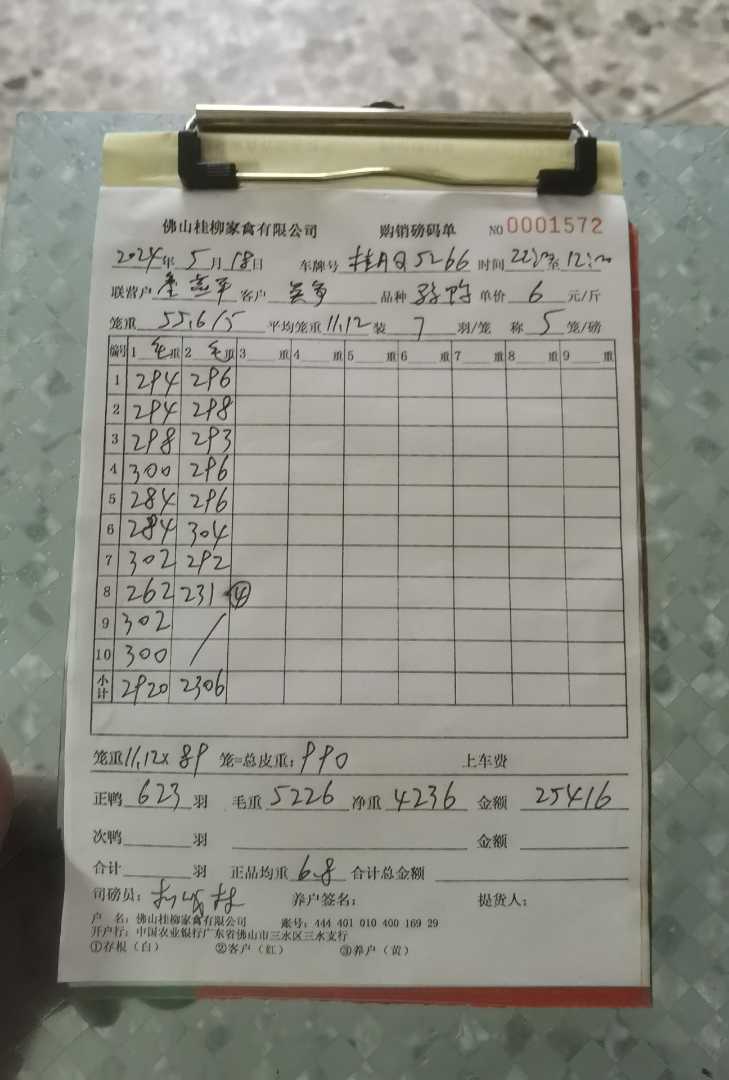 佛山桂柳家禽有限公司 购销磅码单 NO 0001572
2024年 5月18日 车牌号 桂AQ5266 时间 至
联营户 客户 品种 单价 6 元/斤
笼重 55.6/5 平均笼重 11.12 装 7 羽/笼 称 5 笼/磅
编号 1 毛重 2 毛重 3 重 4 重 5 重 6 重 7 重 8 重 9 重
1 294 296
2 294 298
3 298 293
4 300 296
5 284 296
6 284 304
7 302 292
8 262 231 ④
9 302 /
10 300
小计 2920 2306
笼重 11.12× 89 笼=总皮重: 990 上车费
正鸭 623 羽 毛重 5226 净重 4236 金额 25416
次鸭 羽 金额
合计 羽 正品均重 6.8 合计总金额
司磅员: 养户签名: 提货人:
户 名: 佛山桂柳家禽有限公司 账号: 444 401 010 400 169 29
开户行: 中国农业银行广东省佛山市三水区三水支行
①存根（白） ②客户（红） ③养户（黄）